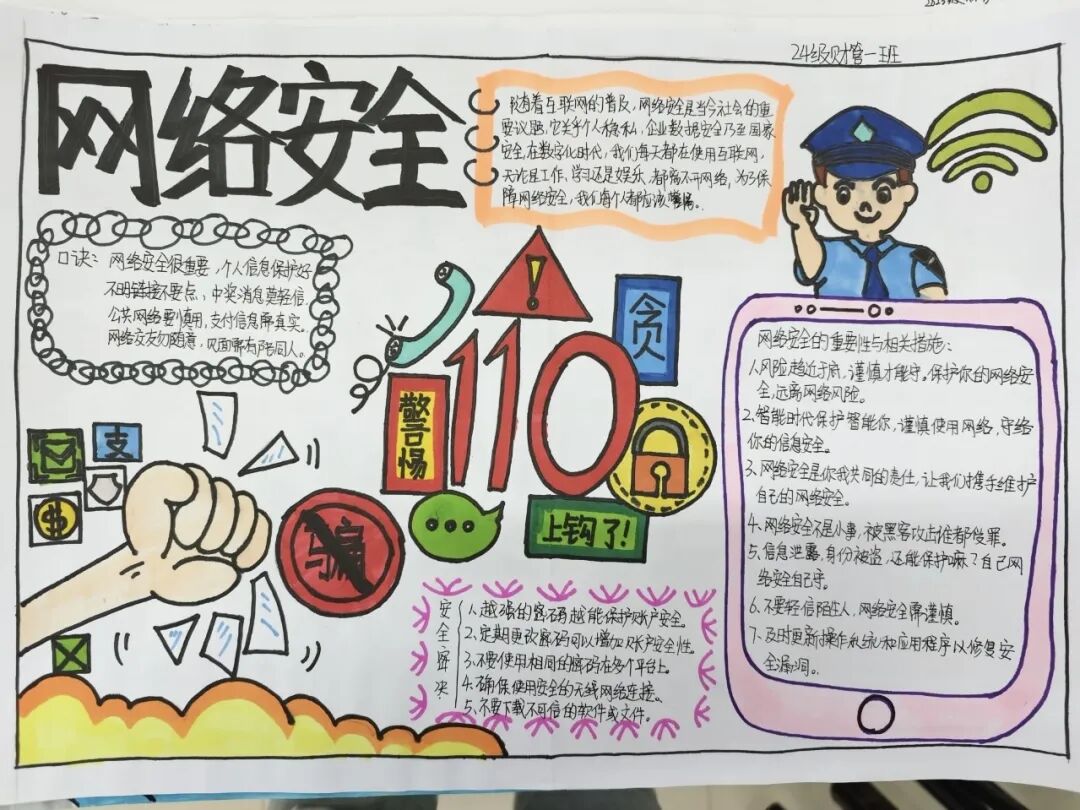 24级财管一班
网络安全
随着互联网的普及,网络安全是当今社会的重
要议题,它关乎个人隐私,企业数据安全乃至国家
安全,在数字化时代,我们每天都在使用互联网,
无论是工作,学习还是娱乐,都离不开网络,为了保
障网络安全,我们每个人都应该警惕。
口诀:网络安全很重要,个人信息保护好
不明链接不要点,中奖消息莫轻信
公共网络要慎用,支付信息需真实。
网络交友勿随意,见面需有陪同人。
110
贪
警惕
上钩了!
骗
支
$
安全密决:
1、越强的密码越能保护账户安全。
2、定期更改密码可以增加账户安全性。
3、不要使用相同的密码在多个平台上。
4、确保使用安全的无线网络连接。
5、不要下载不可信的软件或文件。
网络安全的重要性与相关措施:
1、风险趋近于底,谨慎才能守。保护你的网络安
全,远离网络风险。
2、智能时代保护智能你,谨慎使用网络,守络
你的信息安全。
3、网络安全是你我共同的责任,让我们携手维护
自己的网络安全。
4、网络安全不是小事,被黑客攻击谁都受罪。
5、信息泄露,身份被盗,还能保护嘛?自己网
络安全自己守。
6、不要轻信陌生人,网络安全需谨慎。
7、及时更新操作系统和应用程序以修复安
全漏洞。